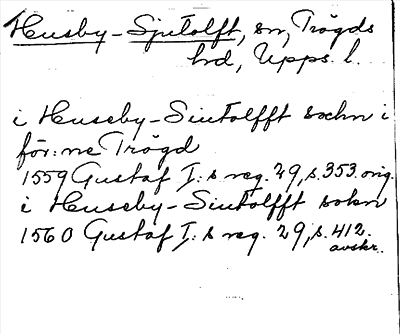 Husby-Sjutolft, sn, Trögds
hd, Upps. l.
i Huseby-Siutolfft sochn i
för:ne Trögd
1559 Gustaf I:s reg. 29, s. 353. orig.
i Huseby-Siutolfft sokn
1560 Gustaf I:s reg. 29, s. 412.
avskr.